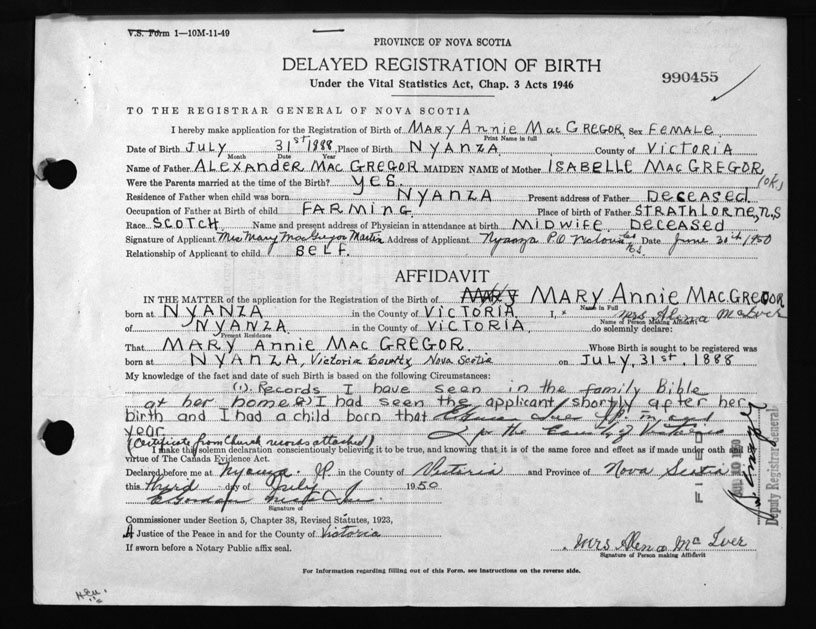 V.S. Form 1—10M-11-49
PROVINCE OF NOVA SCOTIA
DELAYED REGISTRATION OF BIRTH
990455
Under the Vital Statistics Act, Chap. 3 Acts 1946
TO THE REGISTRAR GENERAL OF NOVA SCOTIA
I hereby make application for the Registration of Birth of MARY Annie MacGREGOR Sex FEMALE
Print Name in full
Date of Birth JULY 31st 1888 Place of Birth NYANZA County of VICTORIA
Month Date Year
Name of Father ALEXANDER MACGREGOR MAIDEN NAME of Mother ISABELLE MACGREGOR
Were the Parents married at the time of the Birth? YES. (ok)
Residence of Father when child was born NYANZA Present address of Father DECEASED
Occupation of Father at Birth of child FARMING. Place of birth of Father STRATHLORNE, N.S
Race SCOTCH Name and present address of Physician in attendance at birth MIDWIFE DECEASED
Signature of Applicant Mrs Mary MacGregor Martin Address of Applicant Nyanza P.O Victoria Co N.S. Date June 30th 1950
Relationship of Applicant to child SELF.
AFFIDAVIT
IN THE MATTER of the application for the Registration of Birth of MARY MARY Annie MACGREGOR
Name in Full
born at NYANZA in the County of VICTORIA. I, Mrs Alena McIver
Name of Person Making Affidavit
of NYANZA in the County of VICTORIA do solemnly declare:
Present Residence
That MARY Annie MACGREGOR. Whose Birth is sought to be registered was
born at NYANZA, Victoria County, Nova Scotia on JULY, 31st, 1888
My knowledge of the fact and date of such Birth is based on the following Circumstances:
(1). Records I have seen in the family Bible
at her home (2) I had seen the applicant shortly after her
birth and I had a child born that
year for the County of Victoria
(Certificate from Church records attached)
I make this solemn declaration conscientiously believing it to be true, and knowing that it is of the same force and effect as if made under oath and by
virtue of The Canada Evidence Act.
Declared before me at Nyanza in the County of Victoria and Province of Nova Scotia
this third day of July 1950
Signature of
Commissioner under Section 5, Chapter 38, Revised Statutes, 1923,
A Justice of the Peace in and for the County of Victoria
If sworn before a Notary Public affix seal.
Mrs Alena McIver
Signature of Person making Affidavit
For Information regarding filling out of this Form, see instructions on the reverse side.
Deputy Registrar General